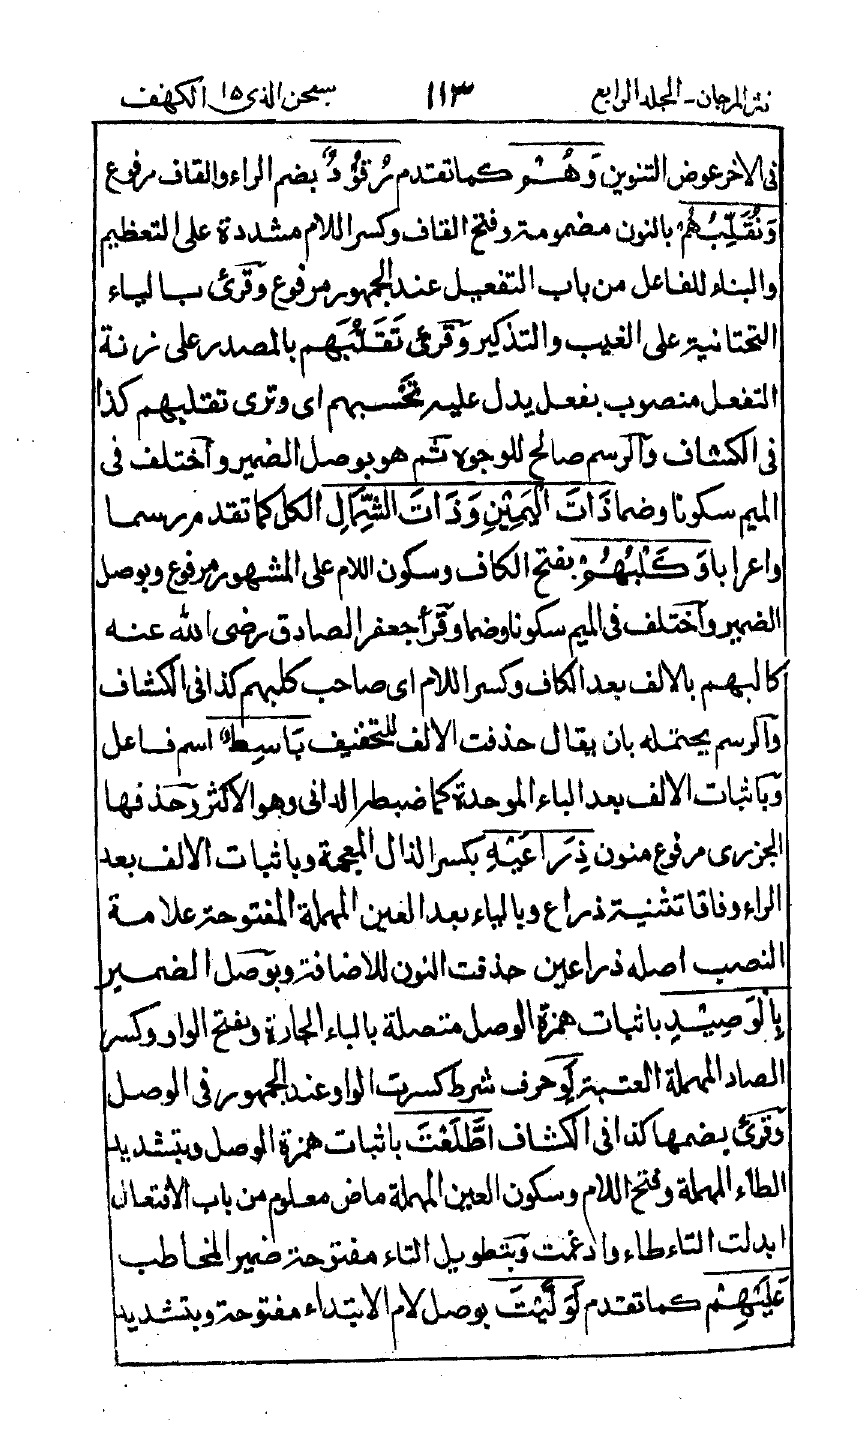 نثر المرجان - المجلد الرابع ١١٣ سبحن الذى ١٥ الكهف
فى الاخر عوض التنوين وَهُمْ كما تقدم رُقُوْدٌ بضم الراء والقاف مرفوع
وَنُقَلِّبُهُمْ بالنون مضمومة وفتح القاف وكسر اللام مشددة على التعظيم
والبناء للفاعل من باب التفعيل عند الجمهور مرفوع وقرئ بالياء
التحتانية على الغيب والتذكير وقرئ تَقَلُّبَهم بالمصدر على زنة
التفعل منصوب بفعل يدل عليه تَحْسبهم اى وترى تقلبهم كذا
فى الكشاف والرسم صالح للوجوه ثم هو بوصل الضمير واختلف فى
الميم سكونا وضما ذَاتَ الْيَمِيْنِ وَذَاتَ الشِّمَالِ الكل كما تقدم رسما
واعرابا وَكَلْبُهُمْ بفتح الكاف وسكون اللام على المشهور مرفوع وبوصل
الضمير واختلف فى الميم سكونا وضما وقرأ جعفر الصادق رضى الله عنه
كالبهم بالالف بعد الكاف وكسر اللام اى صاحب كلبهم كذا فى الكشاف
والرسم يحتمله بان يقال حذفت الالف للتخفيف بَاسِطٌ اسم فاعل
وباثبات الالف بعد الباء الموحدة كما ضبط الدانى وهو الاكثر وحذفها
الجزرى مرفوع منون ذِرَاعَيْهِ بكسر الذال المعجمة وباثبات الالف بعد
الراء وفاقا تثنية ذراع وبالياء بعد العين المهملة المفتوحة علامة
النصب اصله ذراعين حذفت النون للاضافة وبوصل الضمير
بِالْوَصِيْدِ باثبات همزة الوصل متصلة بالباء الجارة وبفتح الواو وكسر
الصاد المهملة العتبة لَوِ حرف شرط كسرت الواو عند الجمهور فى الوصل
وقرئ بضمها كذا فى الكشاف اطَّلَعْتَ باثبات همزة الوصل وبتشديد
الطاء المهملة وفتح اللام وسكون العين المهملة ماض معلوم من باب الافتعال
ابدلت التاء طاء وادغمت وبتطويل التاء مفتوحة ضمير المخاطب
عَلَيْهِمْ كما تقدم لَوَلَّيْتَ بوصل لام الابتداء مفتوحة وبتشديد